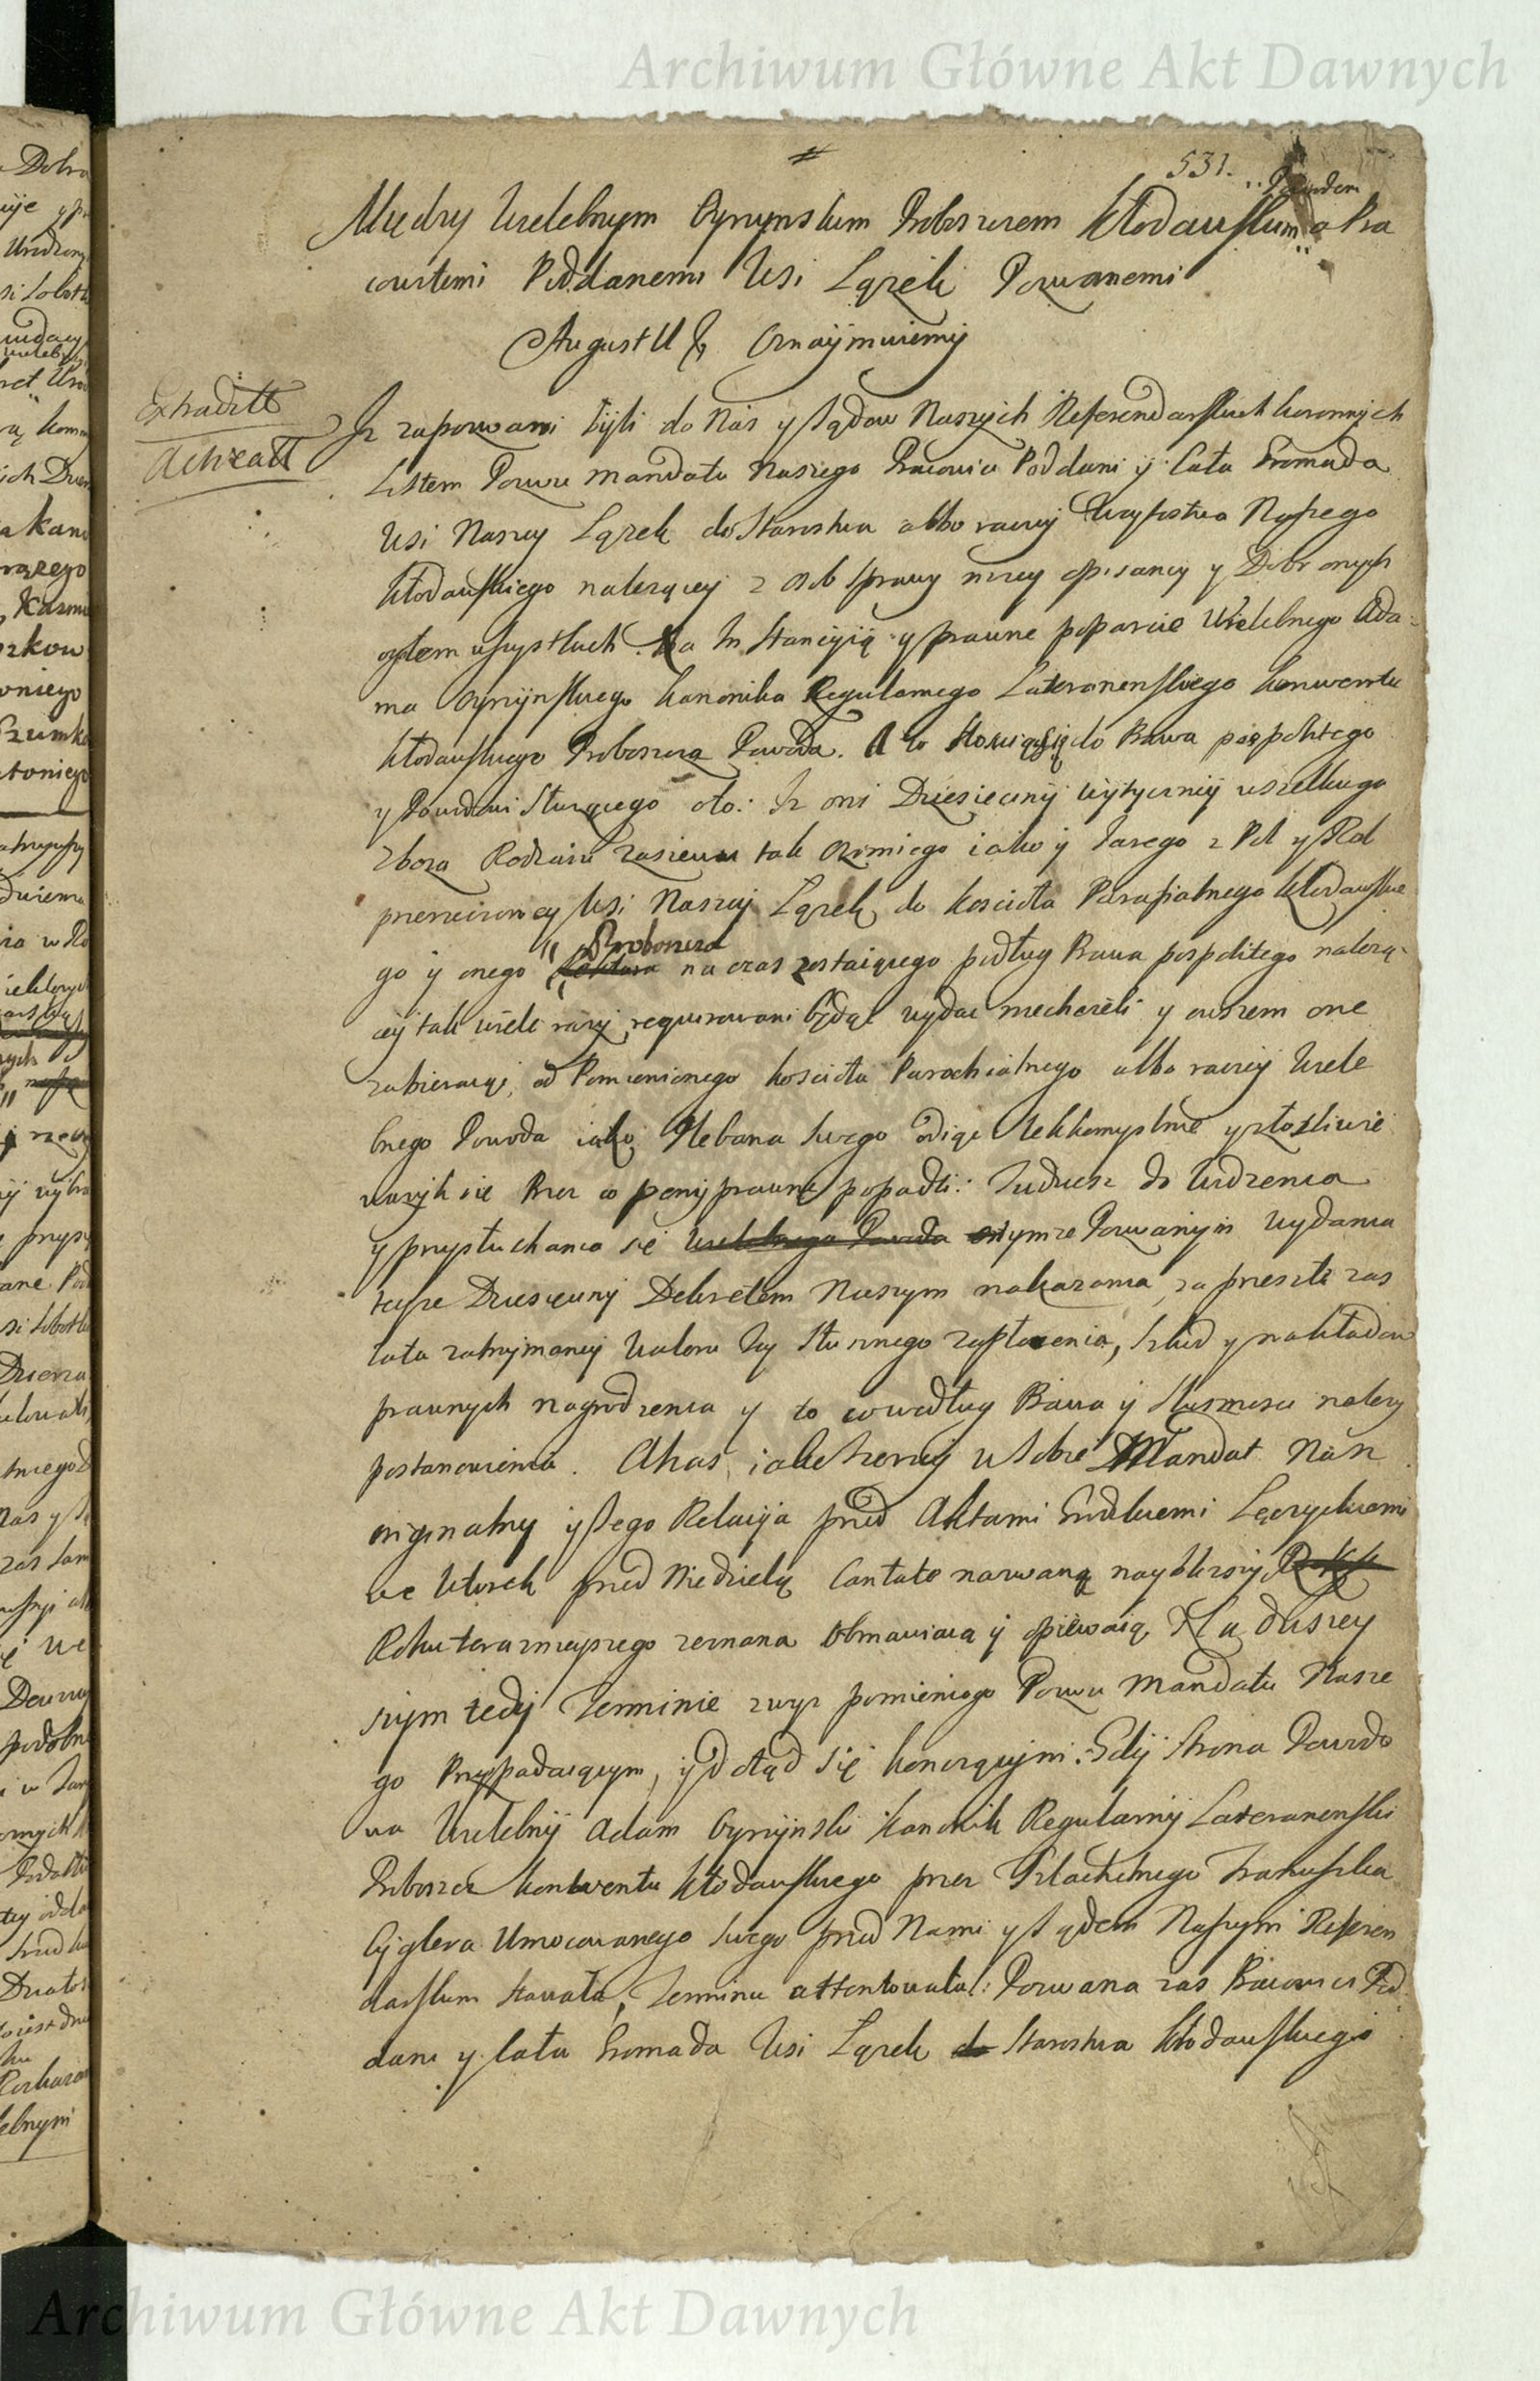 Archiwum Główne Akt Dawnych
531.
Powodem
Między Wielebnym Cyrynskim Proboszczem Kłodawskim a Pra
cowitemi Poddanemi Wsi Łązek Pozwanemi
August II Oznaÿmuiemÿ
Extradält
Iz zapozwani bÿli do Nas y Sądow Naszÿch Referendarskich koronnÿch
Listem Pozwu Mandatu Naszego Pracowici Poddani ÿ Cała Gromada
Wsi Naszey Łązek do Starostwa albo raczeÿ Woÿtostwa Naszego
Kłodawskiego należącey z osob sprawy niżey opisaney y Dobr onych
ogołem wszystkich. Na Instancÿią y prawne poparcie Wielebnego Ada-
ma Cyryńskiego Kanonika Regularnego Lateranenskiego Konwentu
Kłodawskiego Proboszcza Powoda. A to stosuiąc się do Prawa pospolitego
y Powodowi słuzącego oto: Iz oni Dziesięcinÿ wÿtycznÿ wszelkiego
zboza Rodzaiu zasiewu tak ozimiego iako ÿ Jarego z Pol y Rol
pomienioney Wsi Naszeÿ Łązek do Koscioła Parafialnego Kłodawskie
go ÿ onego Proboszcza na czas zostaiącego podług Prawa pospolitego należą-
ceÿ tak wiele razÿ requirowani będąc wydac niechcieli y owszem one
zabieraiąc, od Pomienionego koscioła Parochialnego albo raczeÿ Wiele
bnego Powoda iako Plebana swego odiąc lekkomyslnie y złosliwie
wazÿli się Przez co penÿ prawne popadli: Tudziesz do widzenia
y przysłuchania się Wielebnego Powoda onymze Pozwanÿm wydania
teyze Dziesięcinÿ Dekretem Naszym nakazania, za przeszłe zas
lata zatrzymaneÿ Waloru Jey słusznego zapłacenia, szkod y nakładow
prawnych nagrodzenia y to co według Prawa ÿ słusznosci należy
postanowienia. A has iako szerzeÿ w sobie Mandat Nasz
originalny ÿ Jego Relacÿa przed Aktami Grodzkiemi Łęczyckiemi
we Wtorek przed Niedzielą Cantate nazwaną naÿblizszÿ
Roku teraznieyszego zeznana obmawiaią ÿ opiewaią. Na dzisiey
szÿm tedÿ Terminie z wyż pomienionego Pozwu Mandatu Nasze
go Przypadaiącym, ÿ Dotąd się konczącÿm. Gdÿ Strona Powodo
wa Wielebnÿ Adam Cyrÿnski Kanonik Regularnÿ Lateranenski
Proboszcz Konwentu Kłodawskiego przez Szlachetnego Franciszka
Cÿglera Umocowanego swego przed Nami y Sądem Naszym Referen
darskim stawała, Terminu attentowała: Pozwana zas Pracowici Pod
dani y Cała Gromada Wsi Łązek do Starostwa Kłodawskiego
Archiwum Główne Akt Dawnych